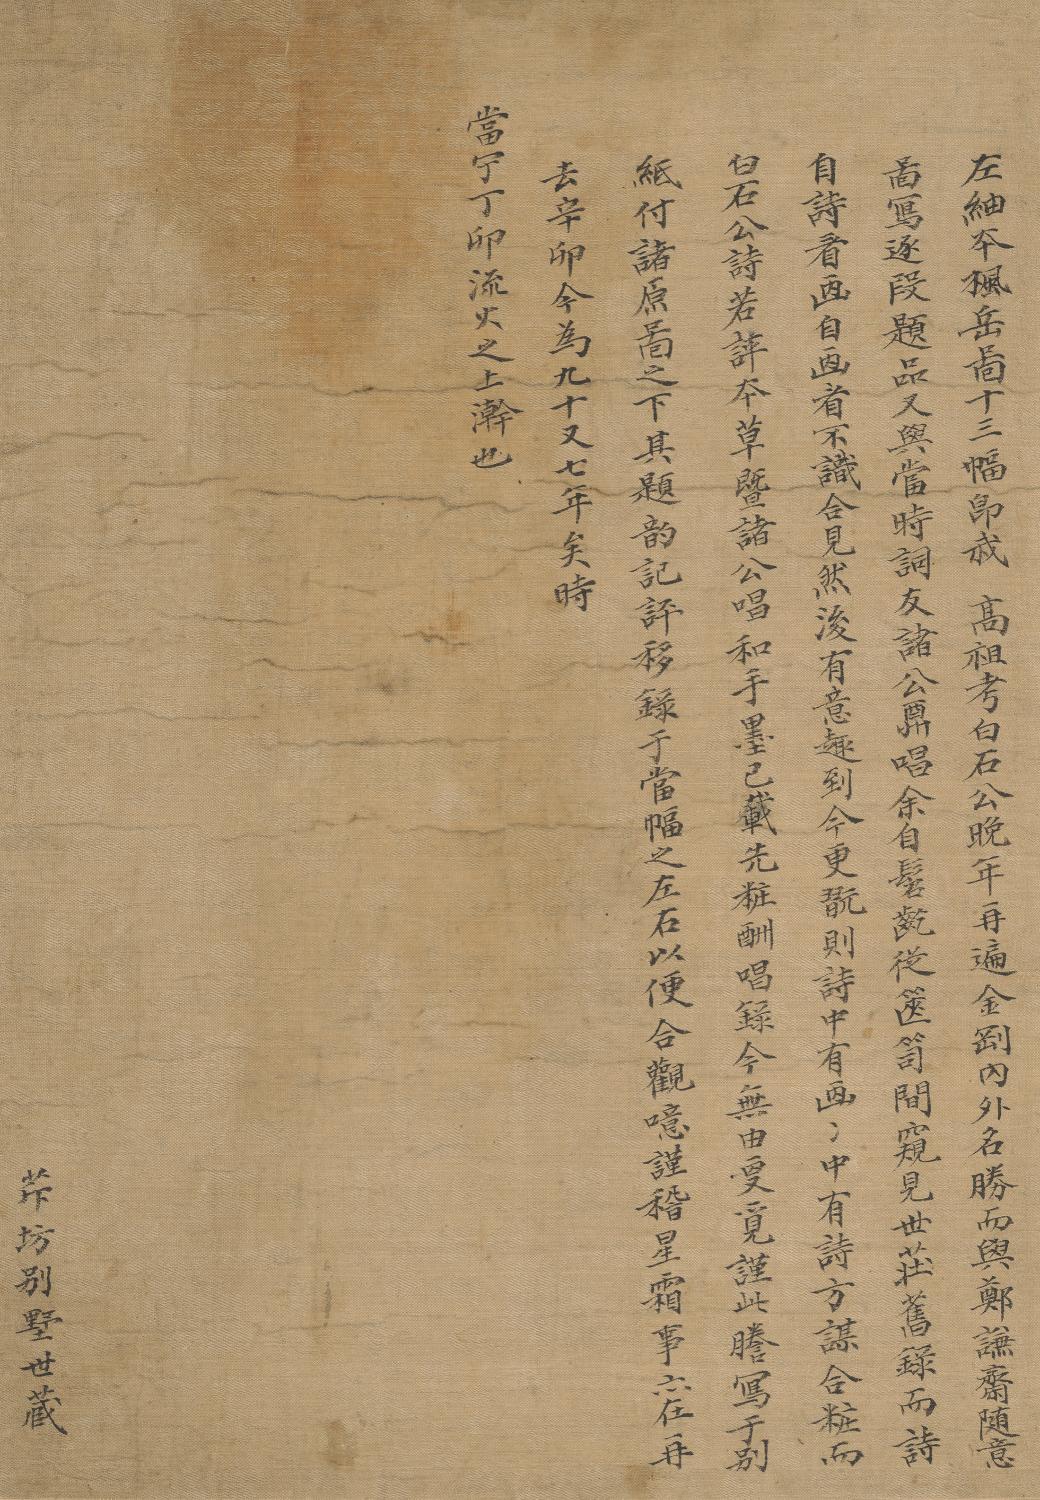 左紬夲楓岳啚十三幅卽我 高祖考白石公晚年再遍金剛內外名勝而與鄭謙齋随意
啚寫逐段題品又與當時詞友諸公賡唱余自髫齔從篋笥間窺見世莊舊錄而詩
自詩看画自画看不識合見然後有意趣到今更翫則詩中有画〻中有詩方謀合粧而
白石公詩若評夲草曁諸公唱和手墨已載先粧酬唱錄今無由更覓謹此謄寫于別
紙付諸原啚之下其題韵記評移錄于當幅之左右以便合觀噫謹稽星霜事亦在再
去辛卯今為九十又七年矣時
當宁丁卯流火之上澣也
芹坊別墅世藏